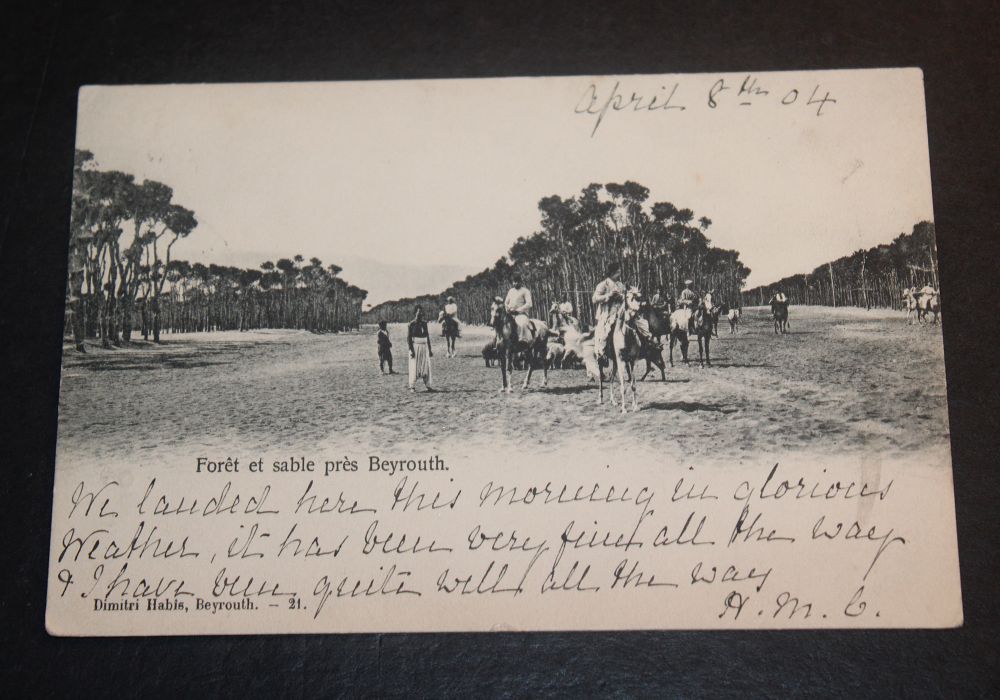 April 8th 04
Forêt et sable près Beyrouth.
We landed here this morning in glorious
Weather, it has been very fine all the way
& I have been quite well all the way
Dimitri Habis, Beyrouth. — 21.
H. M. C.